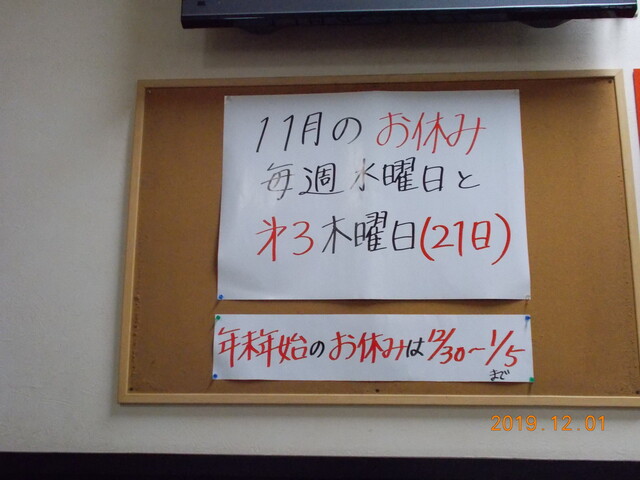 11月のお休み
毎週水曜日と
㐧3木曜日(21日)
年末年始のお休みは12/30～1/5
まで
2019.12.01